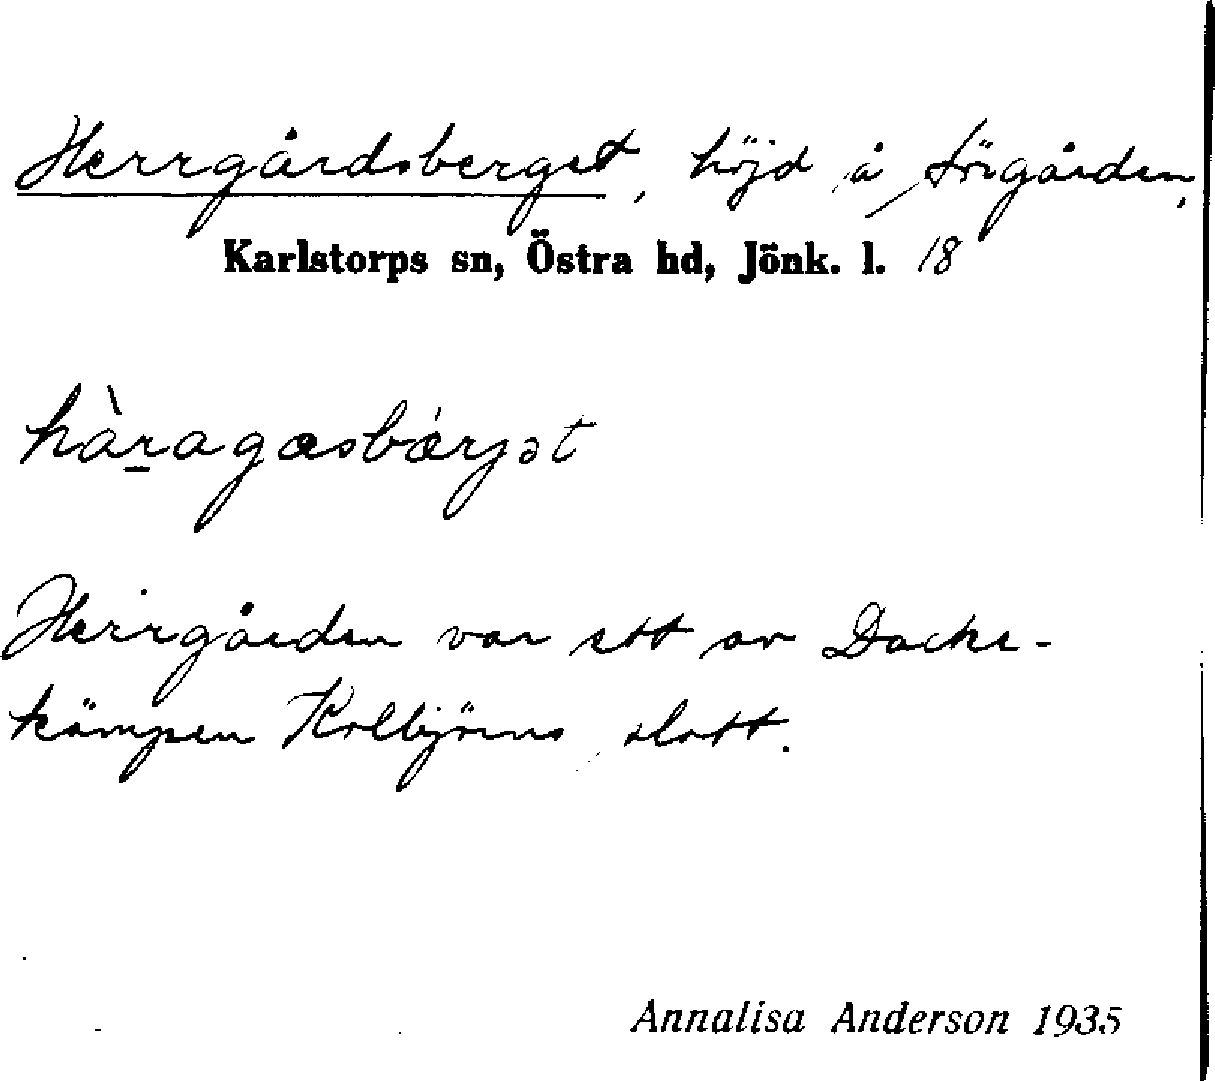 Herrgårdsberget, höjd å Sörgården,
Karlstorps sn, Östra hd, Jönk. l. 18
hàṟagæsbǽrjət
Herrgården var ett av Dacke-
kämpen Kolbjörns slott.
Annalisa Anderson 1935